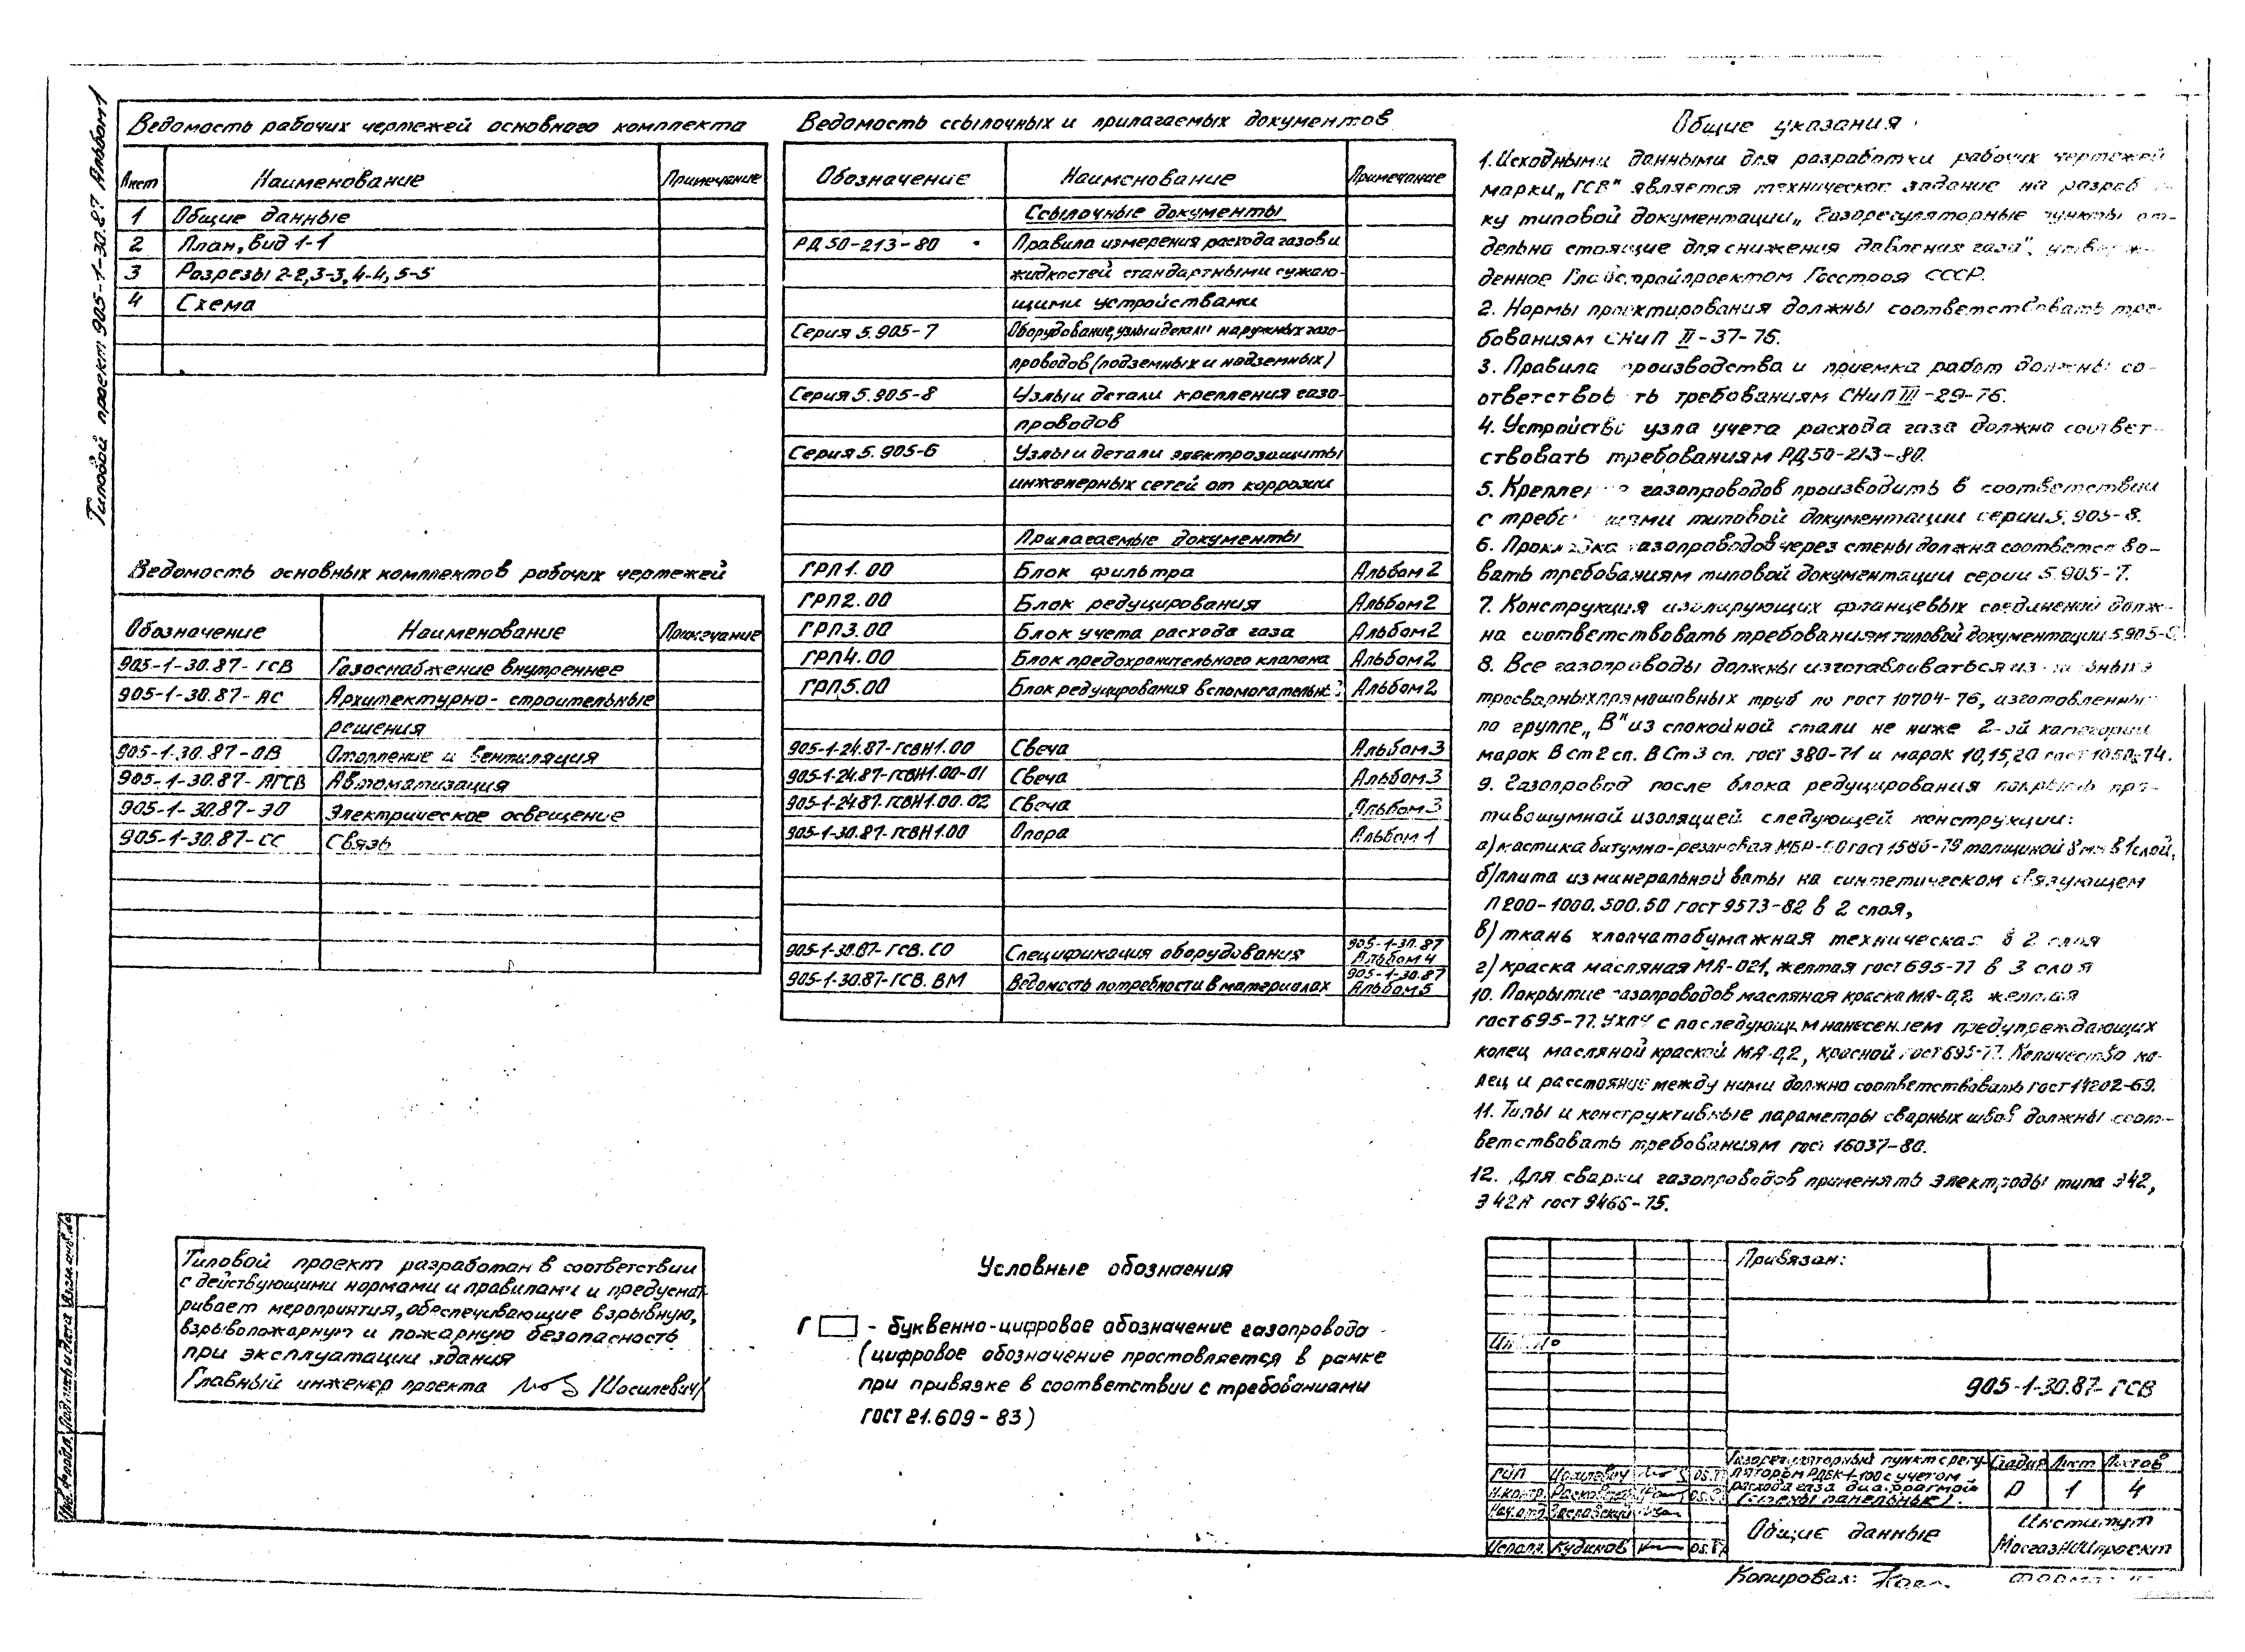 Типовой проект 905-1-30.87 Альбом 1
Ведомость рабочих чертежей основного комплекта
Лист Наименование Примечание
1 Общие данные
2 План, вид 1-1
3 Разрезы 2-2, 3-3, 4-4, 5-5
4 Схема
Ведомость основных комплектов рабочих чертежей
Обозначение Наименование Примечание
905-1-30.87-ГСВ Газоснабжение внутреннее
905-1-30.87-АС Архитектурно-строительные
решения
905-1-30.87-ОВ Отопление и вентиляция
905-1-30.87-АГСВ Автоматизация
905-1-30.87-ЭО Электрическое освещение
905-1-30.87-СС Связь
Типовой проект разработан в соответствии
с действующими нормами и правилами и предусмат-
ривает мероприятия, обеспечивающие взрывную,
взрывопожарную и пожарную безопасность
при эксплуатации здания
Главный инженер проекта /Иосилевич/
Ведомость ссылочных и прилагаемых документов
Обозначение Наименование Примечание
Ссылочные документы
РД 50-213-80 Правила измерения расхода газов и
жидкостей стандартными сужаю-
щими устройствами
Серия 5.905-7 Оборудование, узлы и детали наружных газо-
проводов (подземных и надземных)
Серия 5.905-8 Узлы и детали крепления газо-
проводов
Серия 5.905-6 Узлы и детали электрозащиты
инженерных сетей от коррозии
Прилагаемые документы
ГРП1.00 Блок фильтра Альбом 2
ГРП2.00 Блок редуцирования Альбом 2
ГРП3.00 Блок учета расхода газа Альбом 2
ГРП4.00 Блок предохранительного клапана Альбом 2
ГРП5.00 Блок редуцирования вспомогательный Альбом 2
905-1-24.87-ГСВН1.00 Свеча Альбом 3
905-1-24.87-ГСВН1.00-01 Свеча Альбом 3
905-1-24.87-ГСВН1.00.02 Свеча Альбом 3
905-1-30.87-ГСВН1.00 Опора Альбом 1
905-1-30.87-ГСВ.СО Спецификация оборудования 905-1-30.87 Альбом 4
905-1-30.87-ГСВ.ВМ Ведомость потребности в материалах 905-1-30.87 Альбом 5
Условные обознаения
Г □ - буквенно-цифровое обозначение газопровода
(цифровое обозначение простовляется в рамке
при привязке в соответствии с требованиами
ГОСТ 21.609-83)
Общие указания
1. Исходными данными для разработки рабочих чертежей
марки „ГСВ" является техническое задание на разраб
ку типовой документации „Газорегуляторные пункты от-
дельно стоящие для снижения давления газа", утверж-
денное Главстройпроектом Госстроя СССР.
2. Нормы проектирования должны соответствовать тре-
бованиям СНиП II-37-76.
3. Правила производства и приемка работ должны со-
ответствов ть требованиям СНиП III-29-76.
4. Устройство узла учета расхода газа должно соответ-
ствовать требованиям РД 50-213-80.
5. Крепление газопроводов производить в соответствии
с требованиями типовой документации серии 5.905-8.
6. Прокладка газопроводов через стены должна соответство-
вать требованиям типовой документации серии 5.905-7.
7. Конструкция изолирующих фланцевых соединений долж-
на соответствовать требованиям типовой документации 5.905-6
8. Все газопроводы должны изготавливаться из
тросварных прямошовных труб по гост 10704-76, изготовленных
по группе „В" из спокойной стали не ниже 2-ой категории
марок ВСт2 сп. ВСт3 сп. гост 380-71 и марок 10,15,20 гост 1050-74.
9. Газопровод после блока редуцирования покрыть про-
тивошумной изоляцией следующей конструкции:
а) мастика битумно-резиновая гост 15836-79 толщиной 8мм в 1 слой,
б) плита из минеральной ваты на синтетическом связующем
П 200-1000.500.50 гост 9573-82 в 2 слоя,
в) ткань хлопчатобумажная техническая в 2 слоя
г) краска масляная МА-021, желтая гост 695-77 в 3 слоя
10. Покрытие газопроводов масляная краска МА-0,2 желтая
гост 695-77. УХЛ4 с последующим нанесением предупреждающих
колец масляной краской МА-0,2, красной гост 695-77. Количество ко-
лец и расстояние между ними должно соответствовать гост 14202-69.
11. Типы и конструктивные параметры сварных швов должны соот-
ветствовать требованиям гост 16037-80.
12. Для сварки газопроводов применять электроды типа Э42,
Э42А гост 9466-75.
Привязан:
Инв. №
905-1-30.87-ГСВ
Газорегуляторный пункт с регу-
лятором РДБК-1-100 с учетом
расхода газа диафрагмой
(стены панельные).
Стадия Лист Листов
Р 1 4
ГИП Иосилевич
Н.контр. Нач.отд. Заславский
Исполн. Кудинов
Общие данные
Институт
МосгазНИИпроект
Копировал:
Формат
Инв. № подл. Подпись и дата Взам. инв. №